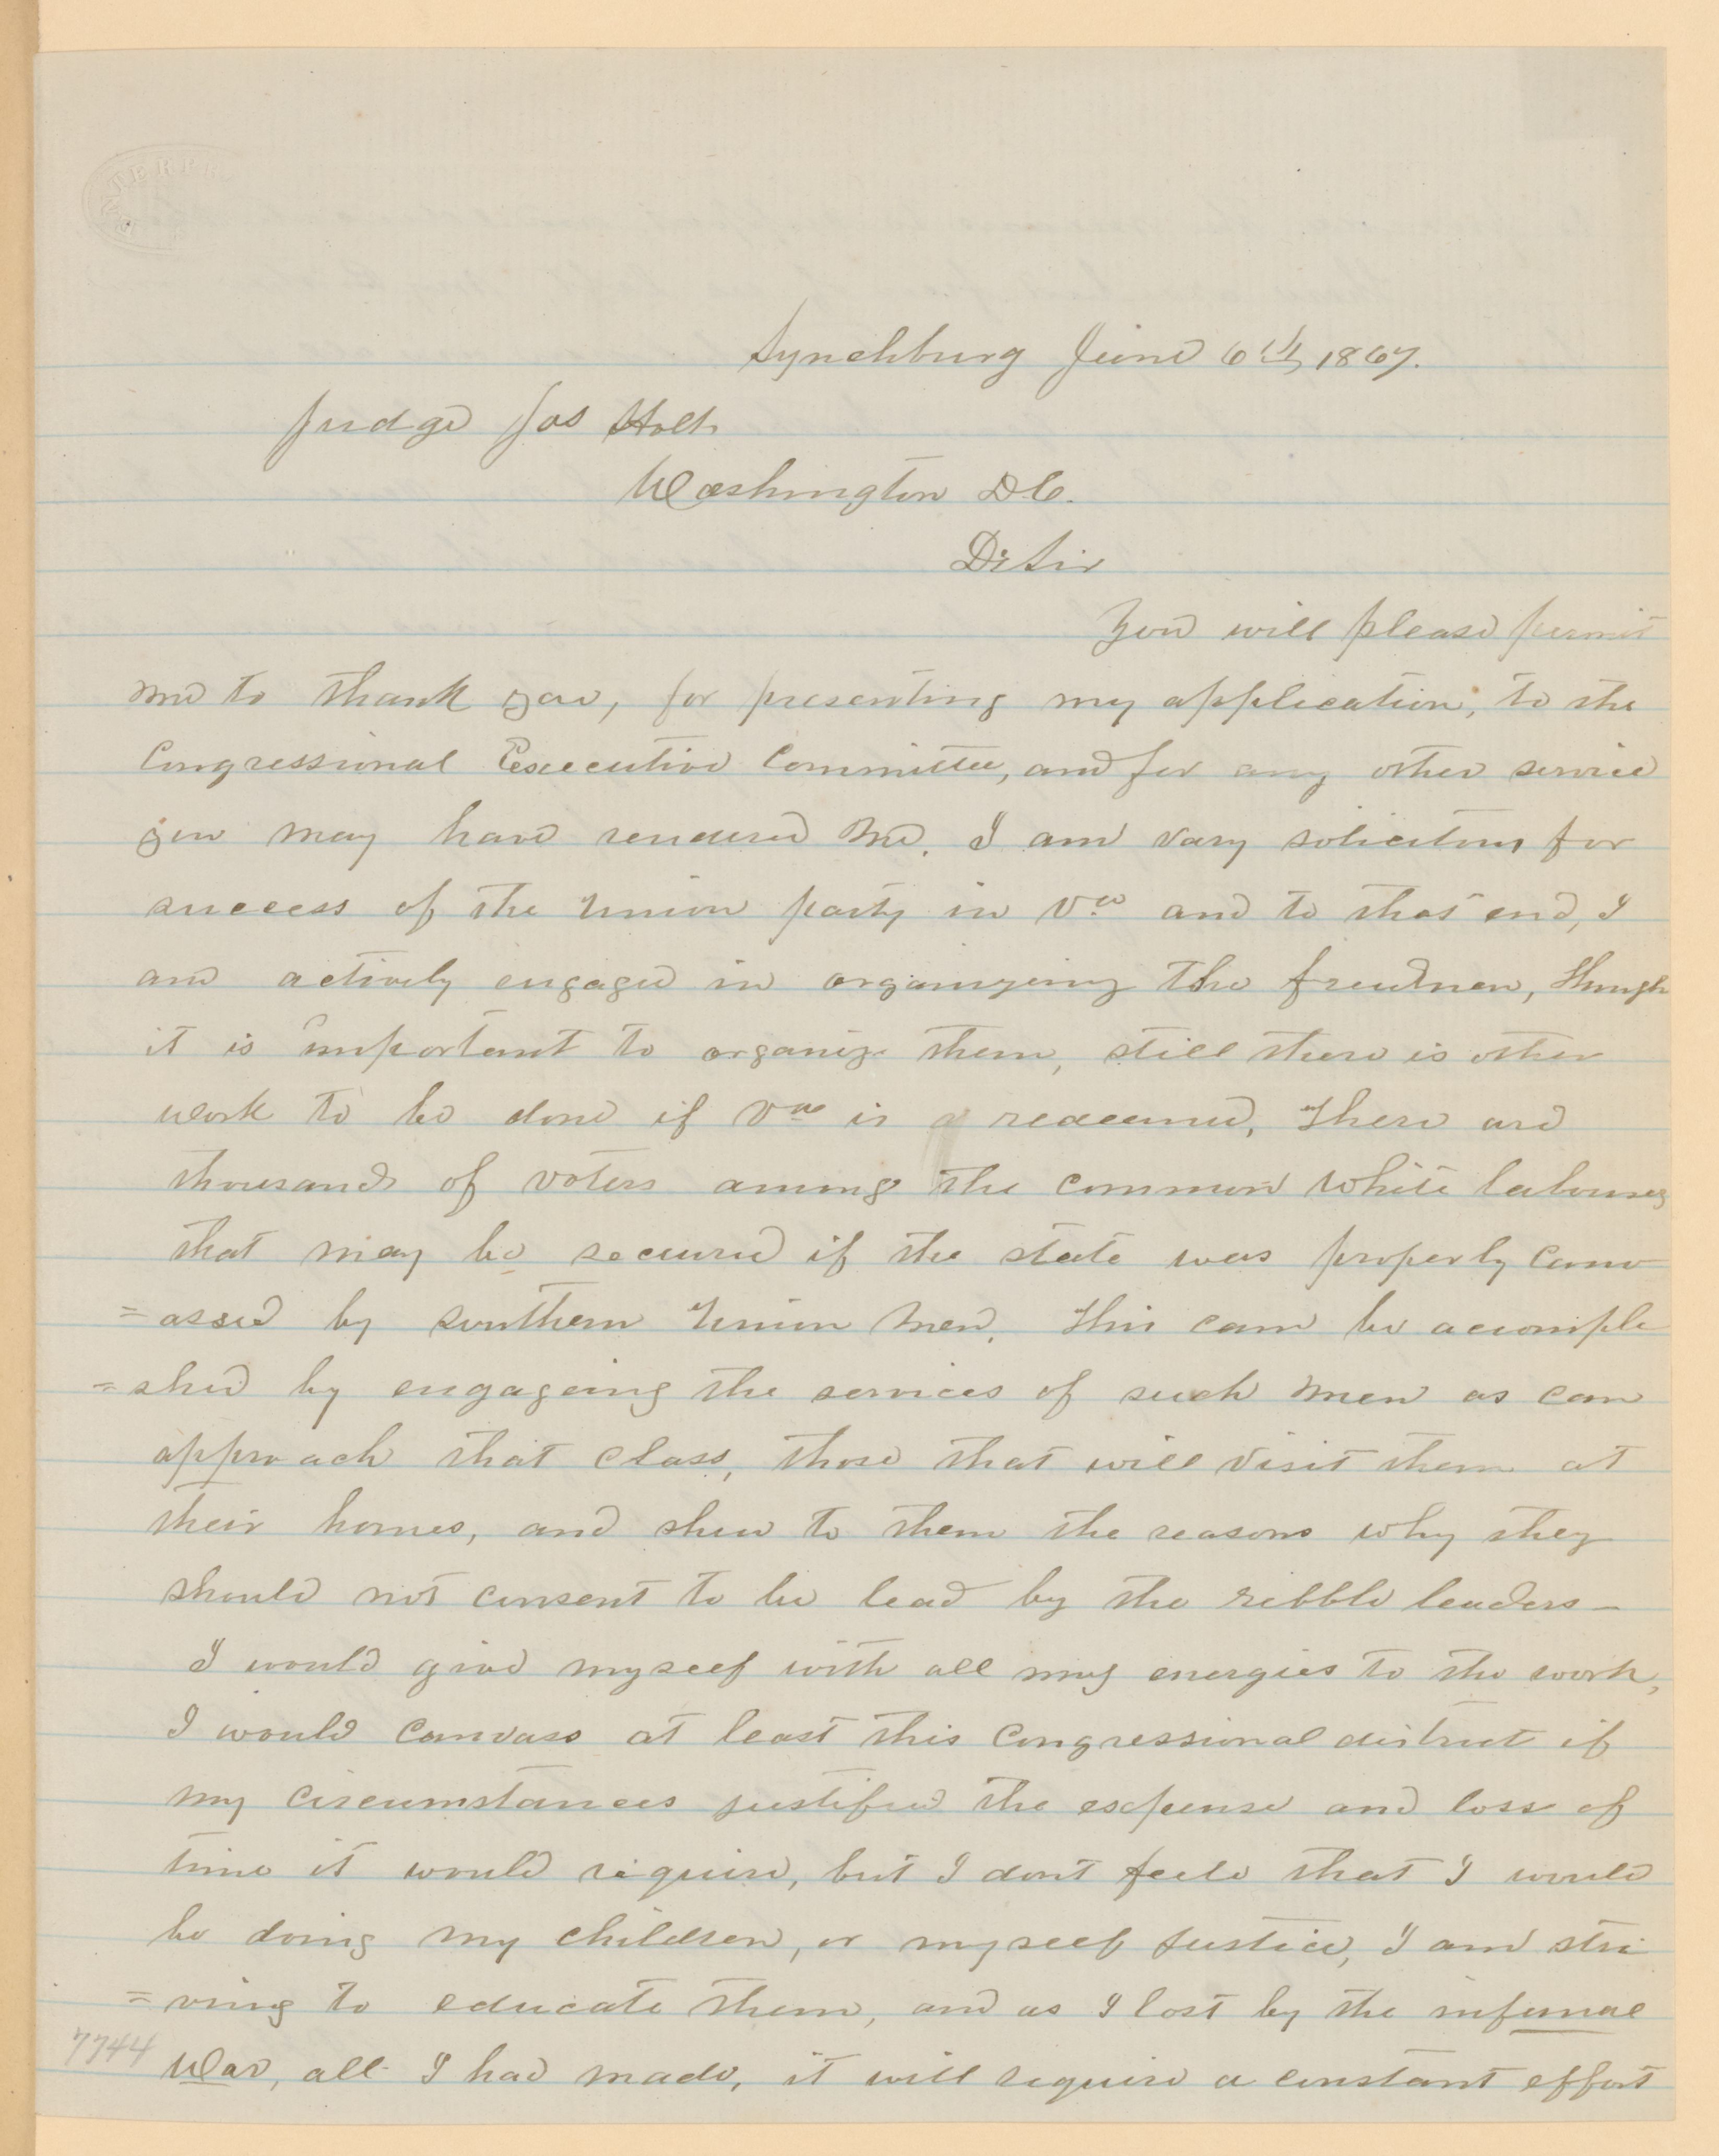 ENTERPR
Lynchburg June 6th 1867.
Judge Jos Holt
Washington DC.
Dr Sir
You will please permit
me to thank you, for presenting my application, to the
Congressional Executive Committee, and for any other service
you may have rendered me. I am vary solicitous for
success of the Union party in Va and to that end, I
am actively engaged in organizing the freedmen, though
it is important to organize them, still there is other
work to be done if Va is redeemed. There are
thousands of voters among the common white labourers
that may be secured if the state was properly canv
=assed by southern Union Men. This can be accompli
=shed by engageing the services of such men as can
approach that class, those that will visit them at
their homes, and shew to them the reasons why they
should not consent to be lead by the rebble leaders -
I would give myself with all my energies to the work,
I would canvass at least this Congressional district if
my circumstances justified the expense and loss of
time it would require, but I dont feele that I would
be doing my children, or myself justice, I am stri
=ving to educate them, and as I lost by the infernal
War, all I had made, it will require a constant effort
7744